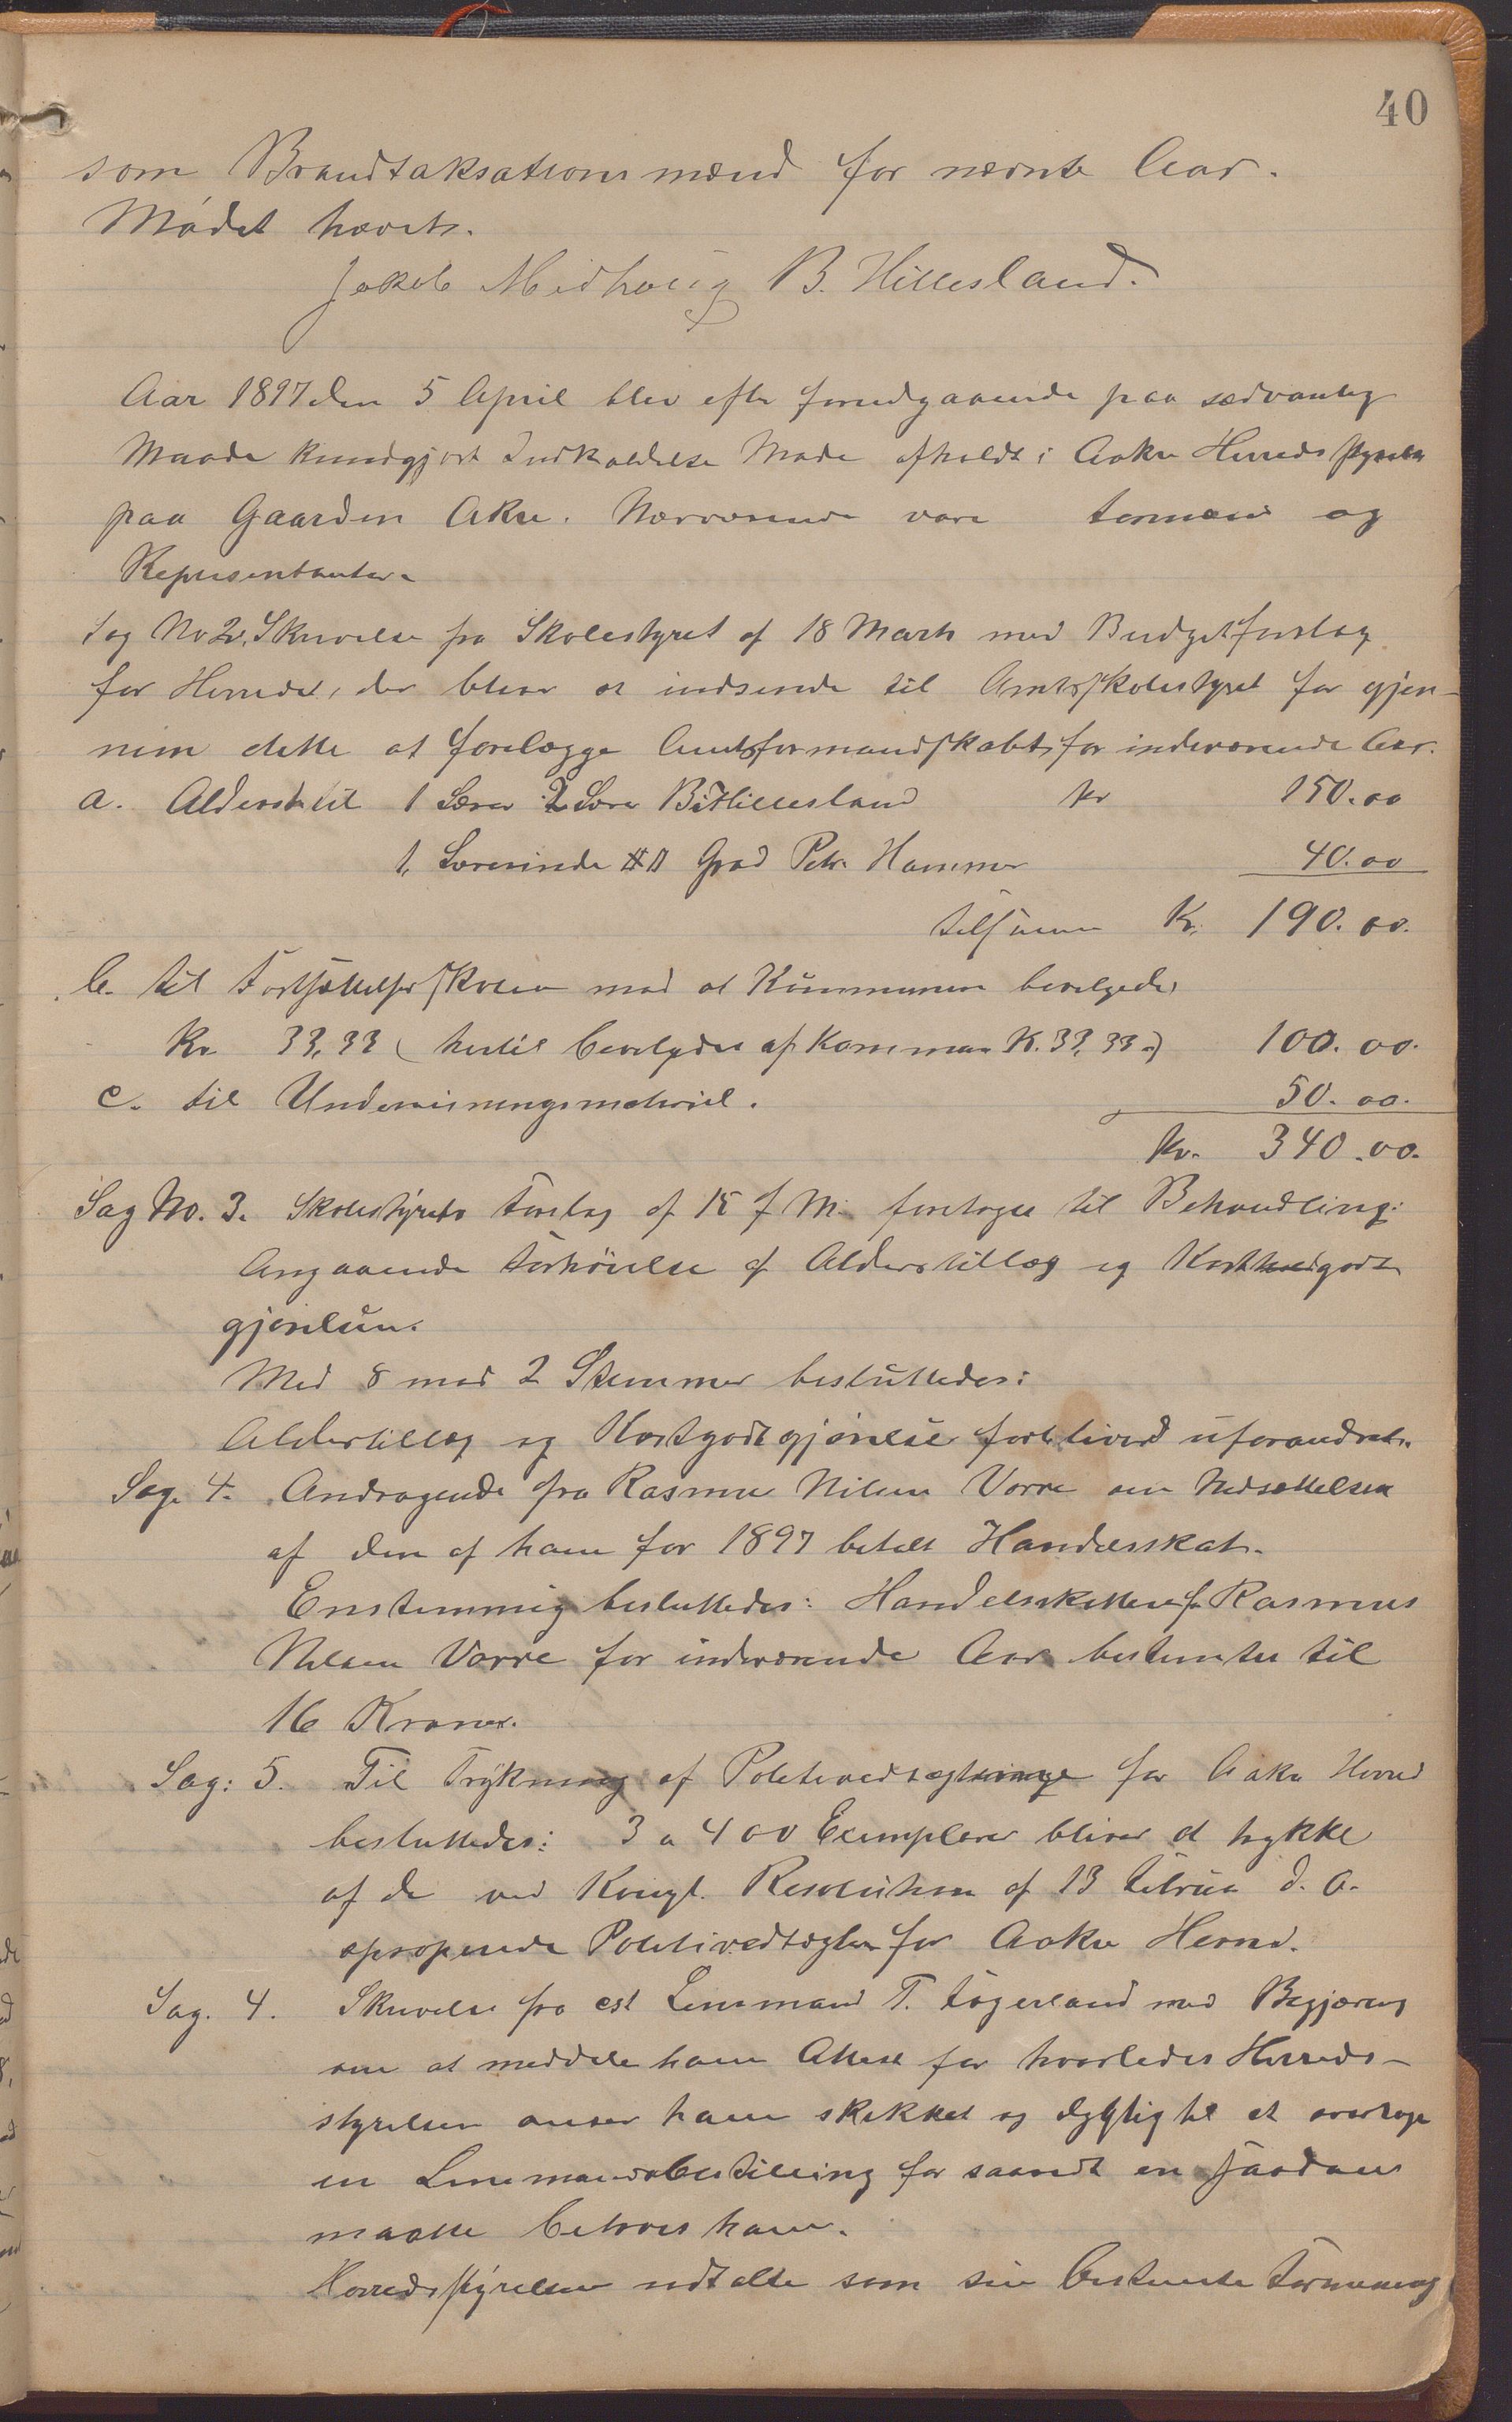 40
som Brandtaksationsmænd for næste Aar.
Mødet hævet.
Jakob Midhaug B. Hillesland.
Aar 1897 den 5 April blev efter forudgaaende paa sædvanlig
Maade kundgjort Indkaldelse Møde afholdt i Aakre Herredsstyrelse
paa Gaarden Akre. Nærværende vare formænd og
Repræsentanter.
Sag No 2. Skrivelse fra Skolestyret af 18 Marts med Budgetforslag
for Herredet, der bliver at indsende til Amtsskolestyret for gjen-
nem dette at forelægge Amtsformandskabet for indeværende Aar.
a. Alderstil 1 Lærer 2 Lærer B. Hillesland kr 150.00
1. Lærerinde Grad Petr. Hammer 40.00
tilsamen Kr. 190.00.
b. til Fortsættelsesskolen mod at Kommunen bevilgede
Kr 33,33 (hertil bevilgedes af Kommunen K. 33,33.) 100.00.
c. til Undervisningsmateriel. 50.00.
Kr. 340.00.
Sag No. 3. Skolestyrets Forslag af 15 f M. foretages til Behandling:
Angaaende Forhøielse af Alderstillæg og Kostgodt
gjørelsen.
Med 8 mod 2 Stemmer besluttedes:
Alderstillæg og Kostgodtgjørelse forbliver uforandret.
Sag. 4. Andragende fra Rasmus Nilsen Vorre om Nedsættelsen
af den af ham for 1897 betalt Handelsskat.
Enstemmig besluttedes: Handelsskatten f. Rasmus
Nilsen Vorre for indeværende Aar bestemtes til
16 Kroner.
Sag: 5. Til Trykning af Politivedtægter for Aakre Herred
besluttedes: 3 a 400 Exemplarer bliver at trykke
af de ved Kongl. Resolution af 13 Februar d. A.
Politivedtægter for Aakre Herred.
Sag. 4. Skrivelse fra cst Lensmand T. Fagerland med Begjæring
om at meddele ham Attest for hvorledes Herreds-
styrelsen anser ham skikket og dygtig til at overtage
en Lensmandsbestilling for saavidt en saadan
maatte betroes ham.
Herredsstyrelsen udtalte som sin bestemte Formening